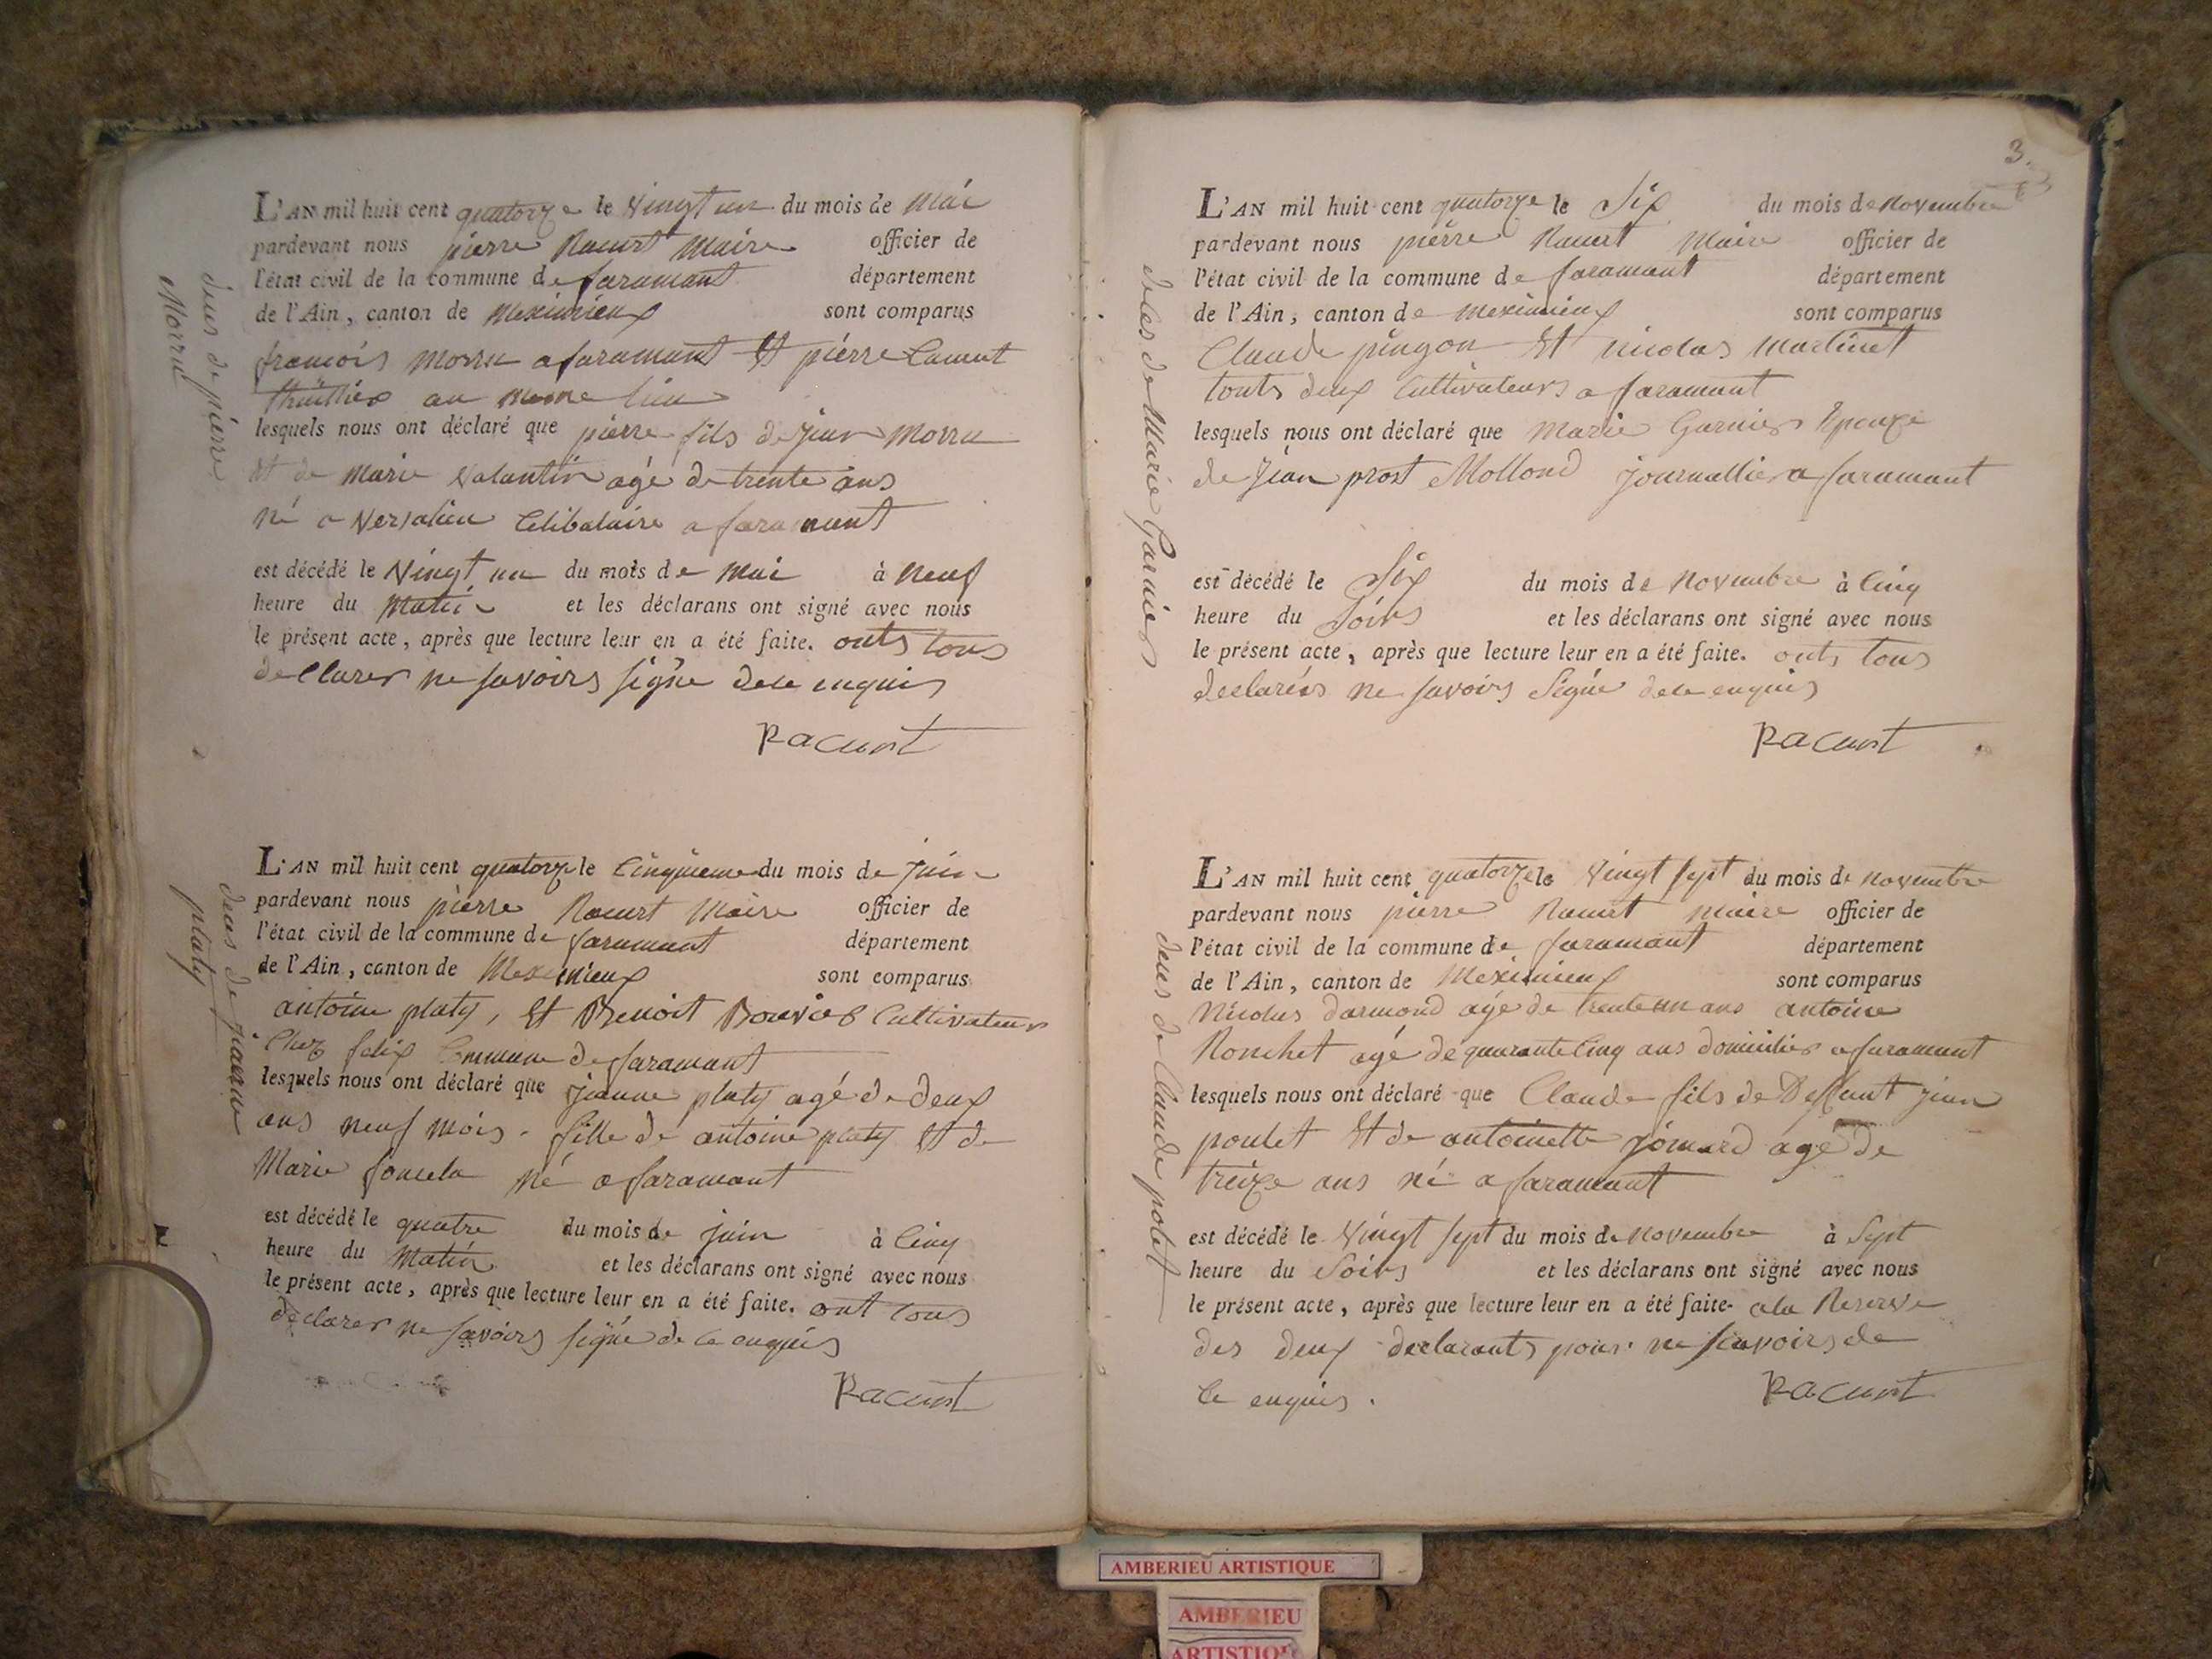 deces de pierre
Morru
L'AN mil huit cent quatorze le Vingt un du mois de Mai
pardevant nous pierre Racurt Maire officier de
l'état civil de la commune de faramant département
de l'Ain, canton de Meximieux sont comparus
francois Morru a faramant Et pierre
au meme lieu
lesquels nous ont déclaré que pierre fils de jean Morru
et de Marie Valantin agé de trente ans
né a Versalieu Célibataire a faramant
est décédé le Vingt un du mois de Mai à Neuf
heure du Matin et les déclarans ont signé avec nous
le présent acte, après que lecture leur en a été faite. onts tous
declarer ne savoirs signe dece enquis
Racurt
deces de jeanne
platy
L'AN mil huit cent quatorze le Cinquieme du mois de juin
pardevant nous pierre Racurt Maire officier de
l'état civil de la commune de faramant département
de l'Ain, canton de Meximieux sont comparus
antoine platy, Et Benoit Bouvier Cultivateur
Chez felix Commune de faramant
lesquels nous ont déclaré que jeanne platy agé de deux
ans neuf mois. fille de antoine platy Et de
Marie né a faramant
est décédé le quatre du mois de juin à Cinq
heure du Matin et les déclarans ont signé avec nous
le présent acte, après que lecture leur en a été faite. ont tous
declarer ne savoirs signé de ce enquis
Racurt
3.
deces de Marie Garnier
L'AN mil huit cent quatorze le Six du mois de novembre
pardevant nous pierre Racurt Maire officier de
l'état civil de la commune de faramant département
de l'Ain, canton de Meximieux sont comparus
Claude pingon Et nicolas Martinet
touts deux Cultivateurs a faramant
lesquels nous ont déclaré que Marie Garnier Epouze
de Jean prost Mollond journallier a faramant
est décédé le Six du mois de Novembre à Cinq
heure du Soirs et les déclarans ont signé avec nous
le présent acte, après que lecture leur en a été faite. onts tous
declarées ne savoirs Signé dece enquis
Racurt
deces de Claude polet
L'AN mil huit cent quatorze le Vingt sept du mois de novembre
pardevant nous pierre Racurt Maire officier de
l'état civil de la commune de faramant département
de l'Ain, canton de Meximieux sont comparus
Nicolas darmond agé de trente un ans antoine
Ronchet agé de quarante Cinq ans domicilier a faramant
lesquels nous ont déclaré que Claude fils de Deffunt jean
poulet Et de antoinette jomard agé de
treize ans né a faramant
est décédé le Vingt sept du mois de Novembre à Sept
heure du Soirs et les déclarans ont signé avec nous
le présent acte, après que lecture leur en a été faite. ala Reserve
des deux declarants pour ne scavoirs de
Ce enquis.
Racurt
AMBERIEU ARTISTIQUE
AMBERIEU